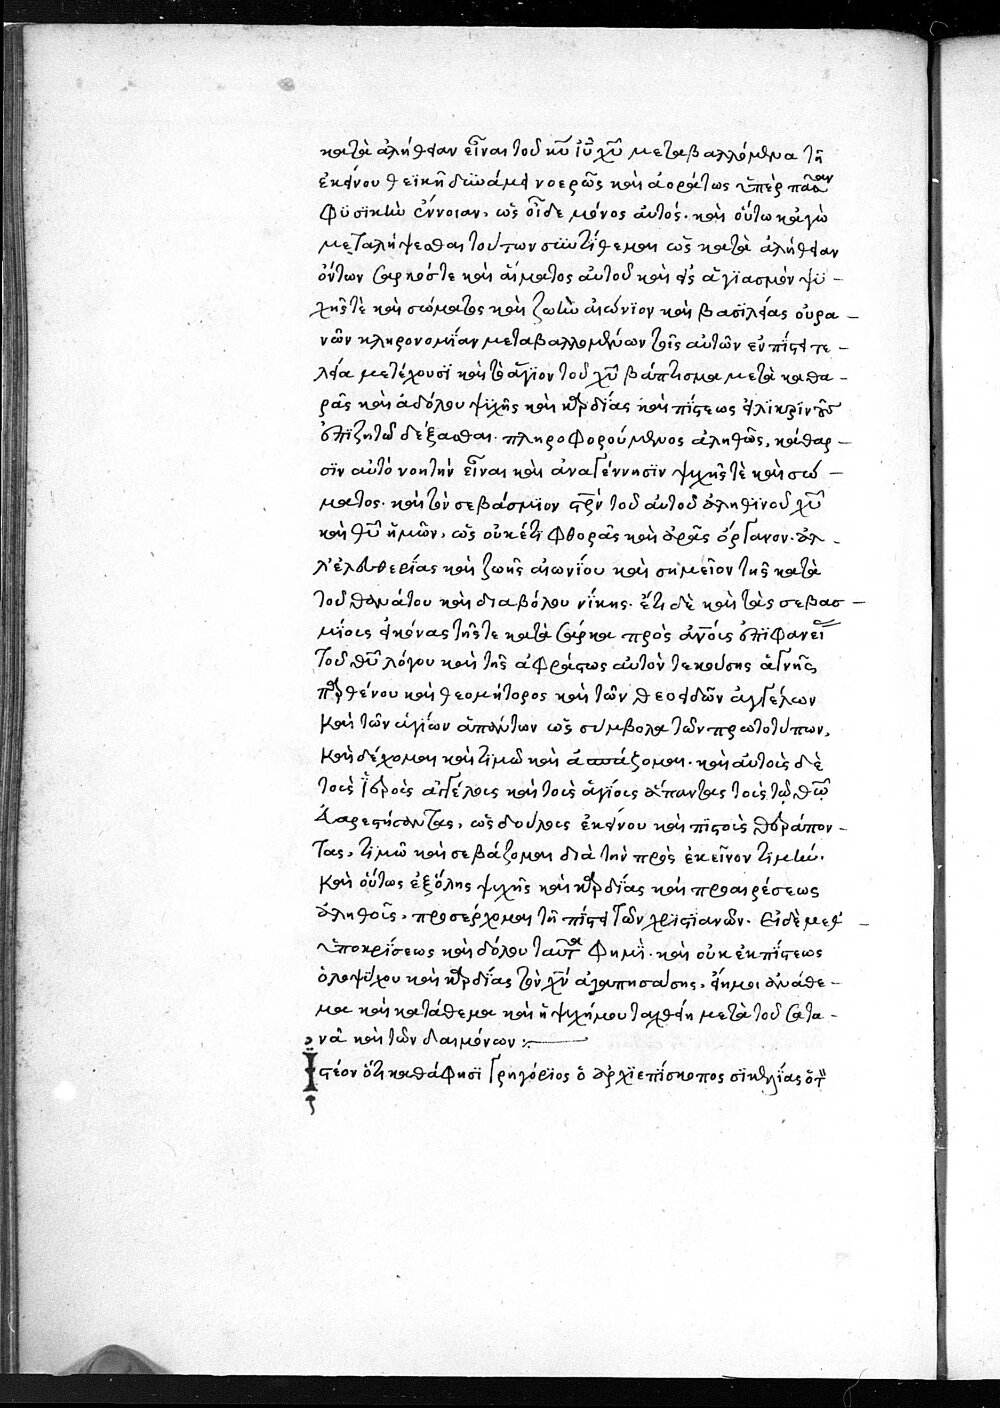 κατὰ ἀλήθειαν εἶναι τοῦ κυ̅ ιυ̅ χυ̅ μεταβαλλόμενα τῇ
ἐκείνου θεϊκῇ δυνάμει νοερῶς καὶ ἀοράτως ὑπὲρ πᾶσαν
φυσικὴν ἔννοιαν, ὡς οἶδε μόνος αὐτός· καὶ οὕτω κἀγὼ
μεταλήψεσθαι τούτων συντίθεμαι ὡς κατὰ ἀλήθειαν
ὄντων σαρκός τε καὶ αἵματος αὐτοῦ καὶ εἰς ἁγιασμὸν ψυ-
χῆς τὲ καὶ σώματος καὶ ζωὴν αἰώνιον καὶ βασιλείας οὐρα-
νῶν κληρονομίαν μεταβαλλομένων τοῖς αὐτῶν ἐν πίστει τε-
λεία μετέχουσι καὶ τὸ ἅγιον τοῦ χυ̅ βάπτισμα μετὰ καθα-
ρᾶς καὶ ἀδόλου ψυχῆς καὶ καρδίας καὶ πίστεως εἰλικρινοῦς
ἐπιζητῶ δέξασθαι· πληροφορούμενος ἀληθῶς, κάθαρ-
σιν αὐτὸ νοητὴν εἶναι καὶ ἀναγέννησιν ψυχῆς τὲ καὶ σώ-
ματος· καὶ τὸν σεβάσμιον στρν̅ τοῦ αὐτοῦ ἀληθινοῦ χυ̅
καὶ θυ̅ ἡμῶν, ὡς οὐκέτι φθορᾶς καὶ ἀρᾶς ὄργανον· ἀλ-
λ' ἐλευθερίας καὶ ζωῆς αἰωνίου καὶ σημεῖον τῆς κατὰ
τοῦ θανάτου καὶ διαβόλου νίκης· ἔτι δὲ καὶ τὰς σεβασ-
μίοις εἰκόνας τῆς τε κατὰ σάρκα πρὸς ἀνο̅ις ἐπιφανεί
τοῦ θυ̅ λόγου καὶ τῆς ἀφράστως αὐτὸν τεκούσης ἁγνῆς
παρθένου καὶ θεομήτορος καὶ τῶν θεοειδῶν ἀγγέλων
καὶ τῶν ἁγίων ἁπάντων ὡς σύμβολα τῶν πρωτοτύπων,
καὶ δέχομαι καὶ τιμῶ καὶ ἀσπάζομαι· καὶ αὐτοῖς δὲ
τοῖς ἱεροῖς ἀγγέλοις καὶ τοῖς ἁγίοις ἅπαντας τοῖς τῷ θω̅
εὐαρεστήσαντας, ὡς δούλοις ἐκείνου καὶ πιστοῖς θεράπον-
τας, τιμῶ καὶ σεβάζομαι διὰ τὴν πρὸς ἐκεῖνον τιμήν·
καὶ οὕτως ἐξόλης ψυχῆς καὶ καρδίας καὶ προαιρέσεως
ἀληθοῦς, προσέρχομαι τῇ πίστει τῶν χριστιανῶν· Εἰ δὲ μεθ'
ὑποκρίσεως καὶ δόλου ταῦτα φημί· καὶ οὐκ ἐκ πίστεως
ὁλοψύχου καὶ καρδίας τὸν χν̅ ἀγαπησάσης, εἴη μοι ἀνάθε-
μα καὶ κατάθεμα καὶ ἡ ψυχή μου ταχθείη μετὰ τοῦ σατα-
νᾶ καὶ τῶν δαιμόνων:-
Ἰστέον ὅτι καθά φησι Γρηγόριος ὁ ἀρχιεπίσκοπος σικελίας ὅτι